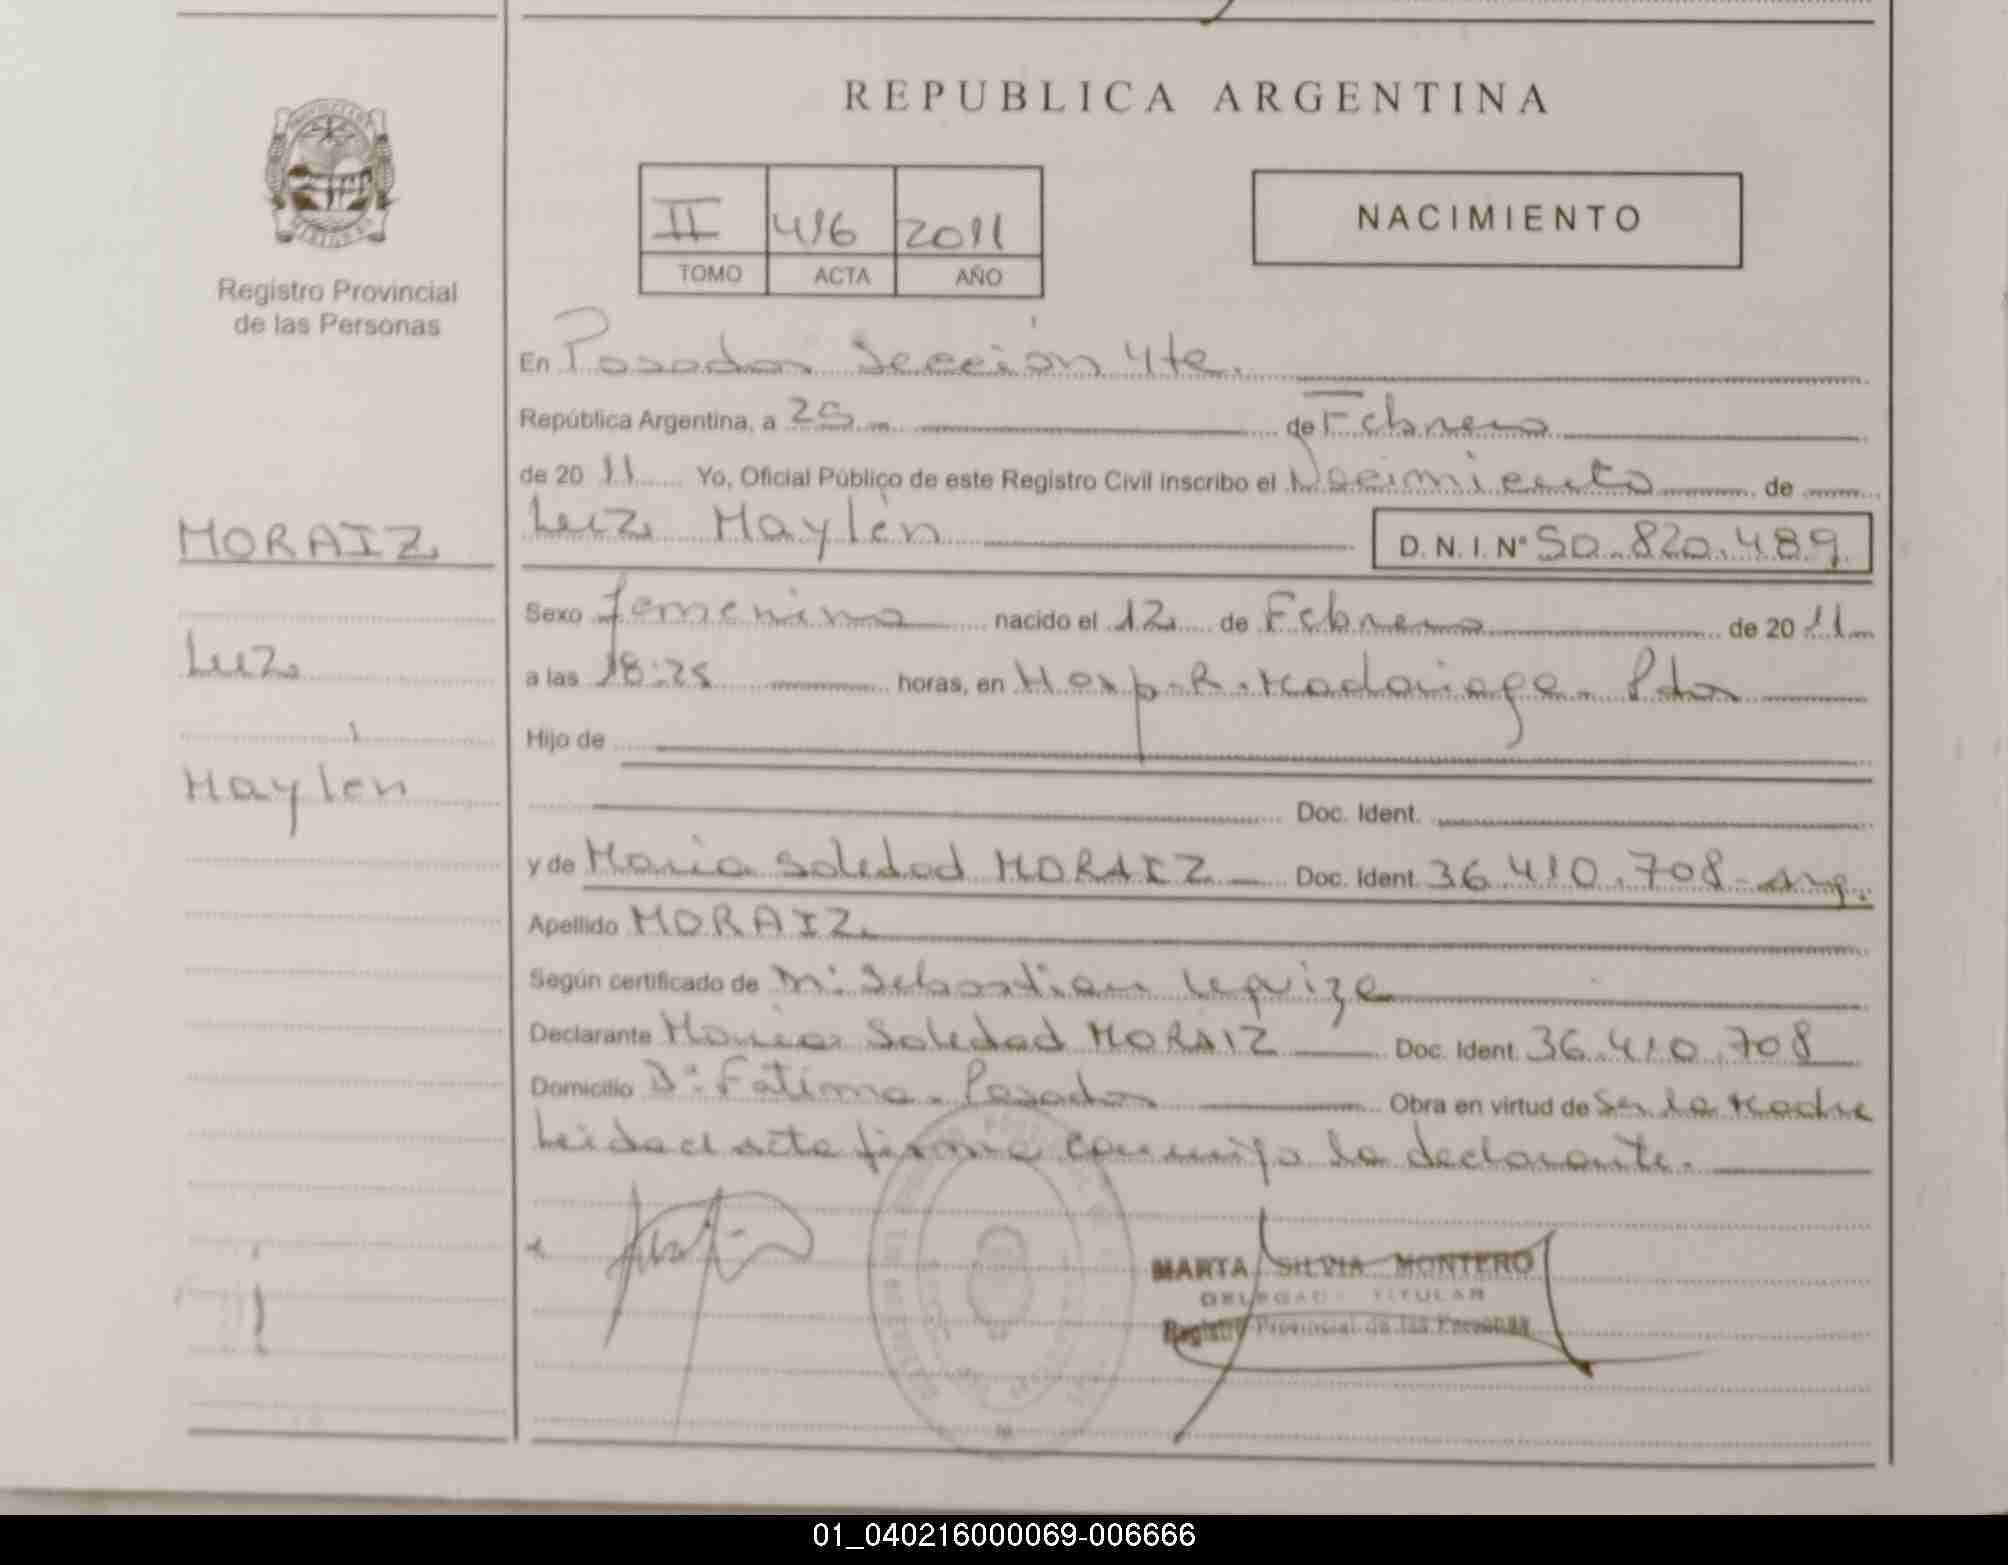 REPUBLICA ARGENTINA
II 416 2011
TOMO ACTA AÑO
NACIMIENTO
Registro Provincial
de las Personas
MORAIZ
Luz
Haylén
En Posadas Sección 4ta.
República Argentina, a 25 de Febrero
de 2011 Yo, Oficial Público de este Registro Civil inscribo el Nacimiento de
Luz Haylén D.N.I.Nº 50.820.489
Sexo femenino nacido el 12 de Febrero de 2011
a las 18:25 horas, en Hosp. R. Madariaga - Pdas
Hijo de
Doc. Ident.
y de María Soledad MORAIZ Doc. Ident. 36.410.708 - Arg.
Apellido MORAIZ
Según certificado de Sebastian
Declarante María Soledad MORAIZ Doc. Ident. 36.410.708
Domicilio Bº Fátima - Posadas Obra en virtud de Ser la Madre
Leida el acta firma conmigo la declarante.
MARTA SILVIA MONTERO
DELEGAD TITULAR
Registro Provincial de las Personas
01_040216000069-006666